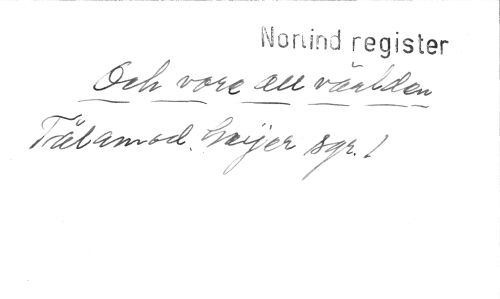 Norlind register
Och vore all världen
Tålamod. Geijer sgr. 1